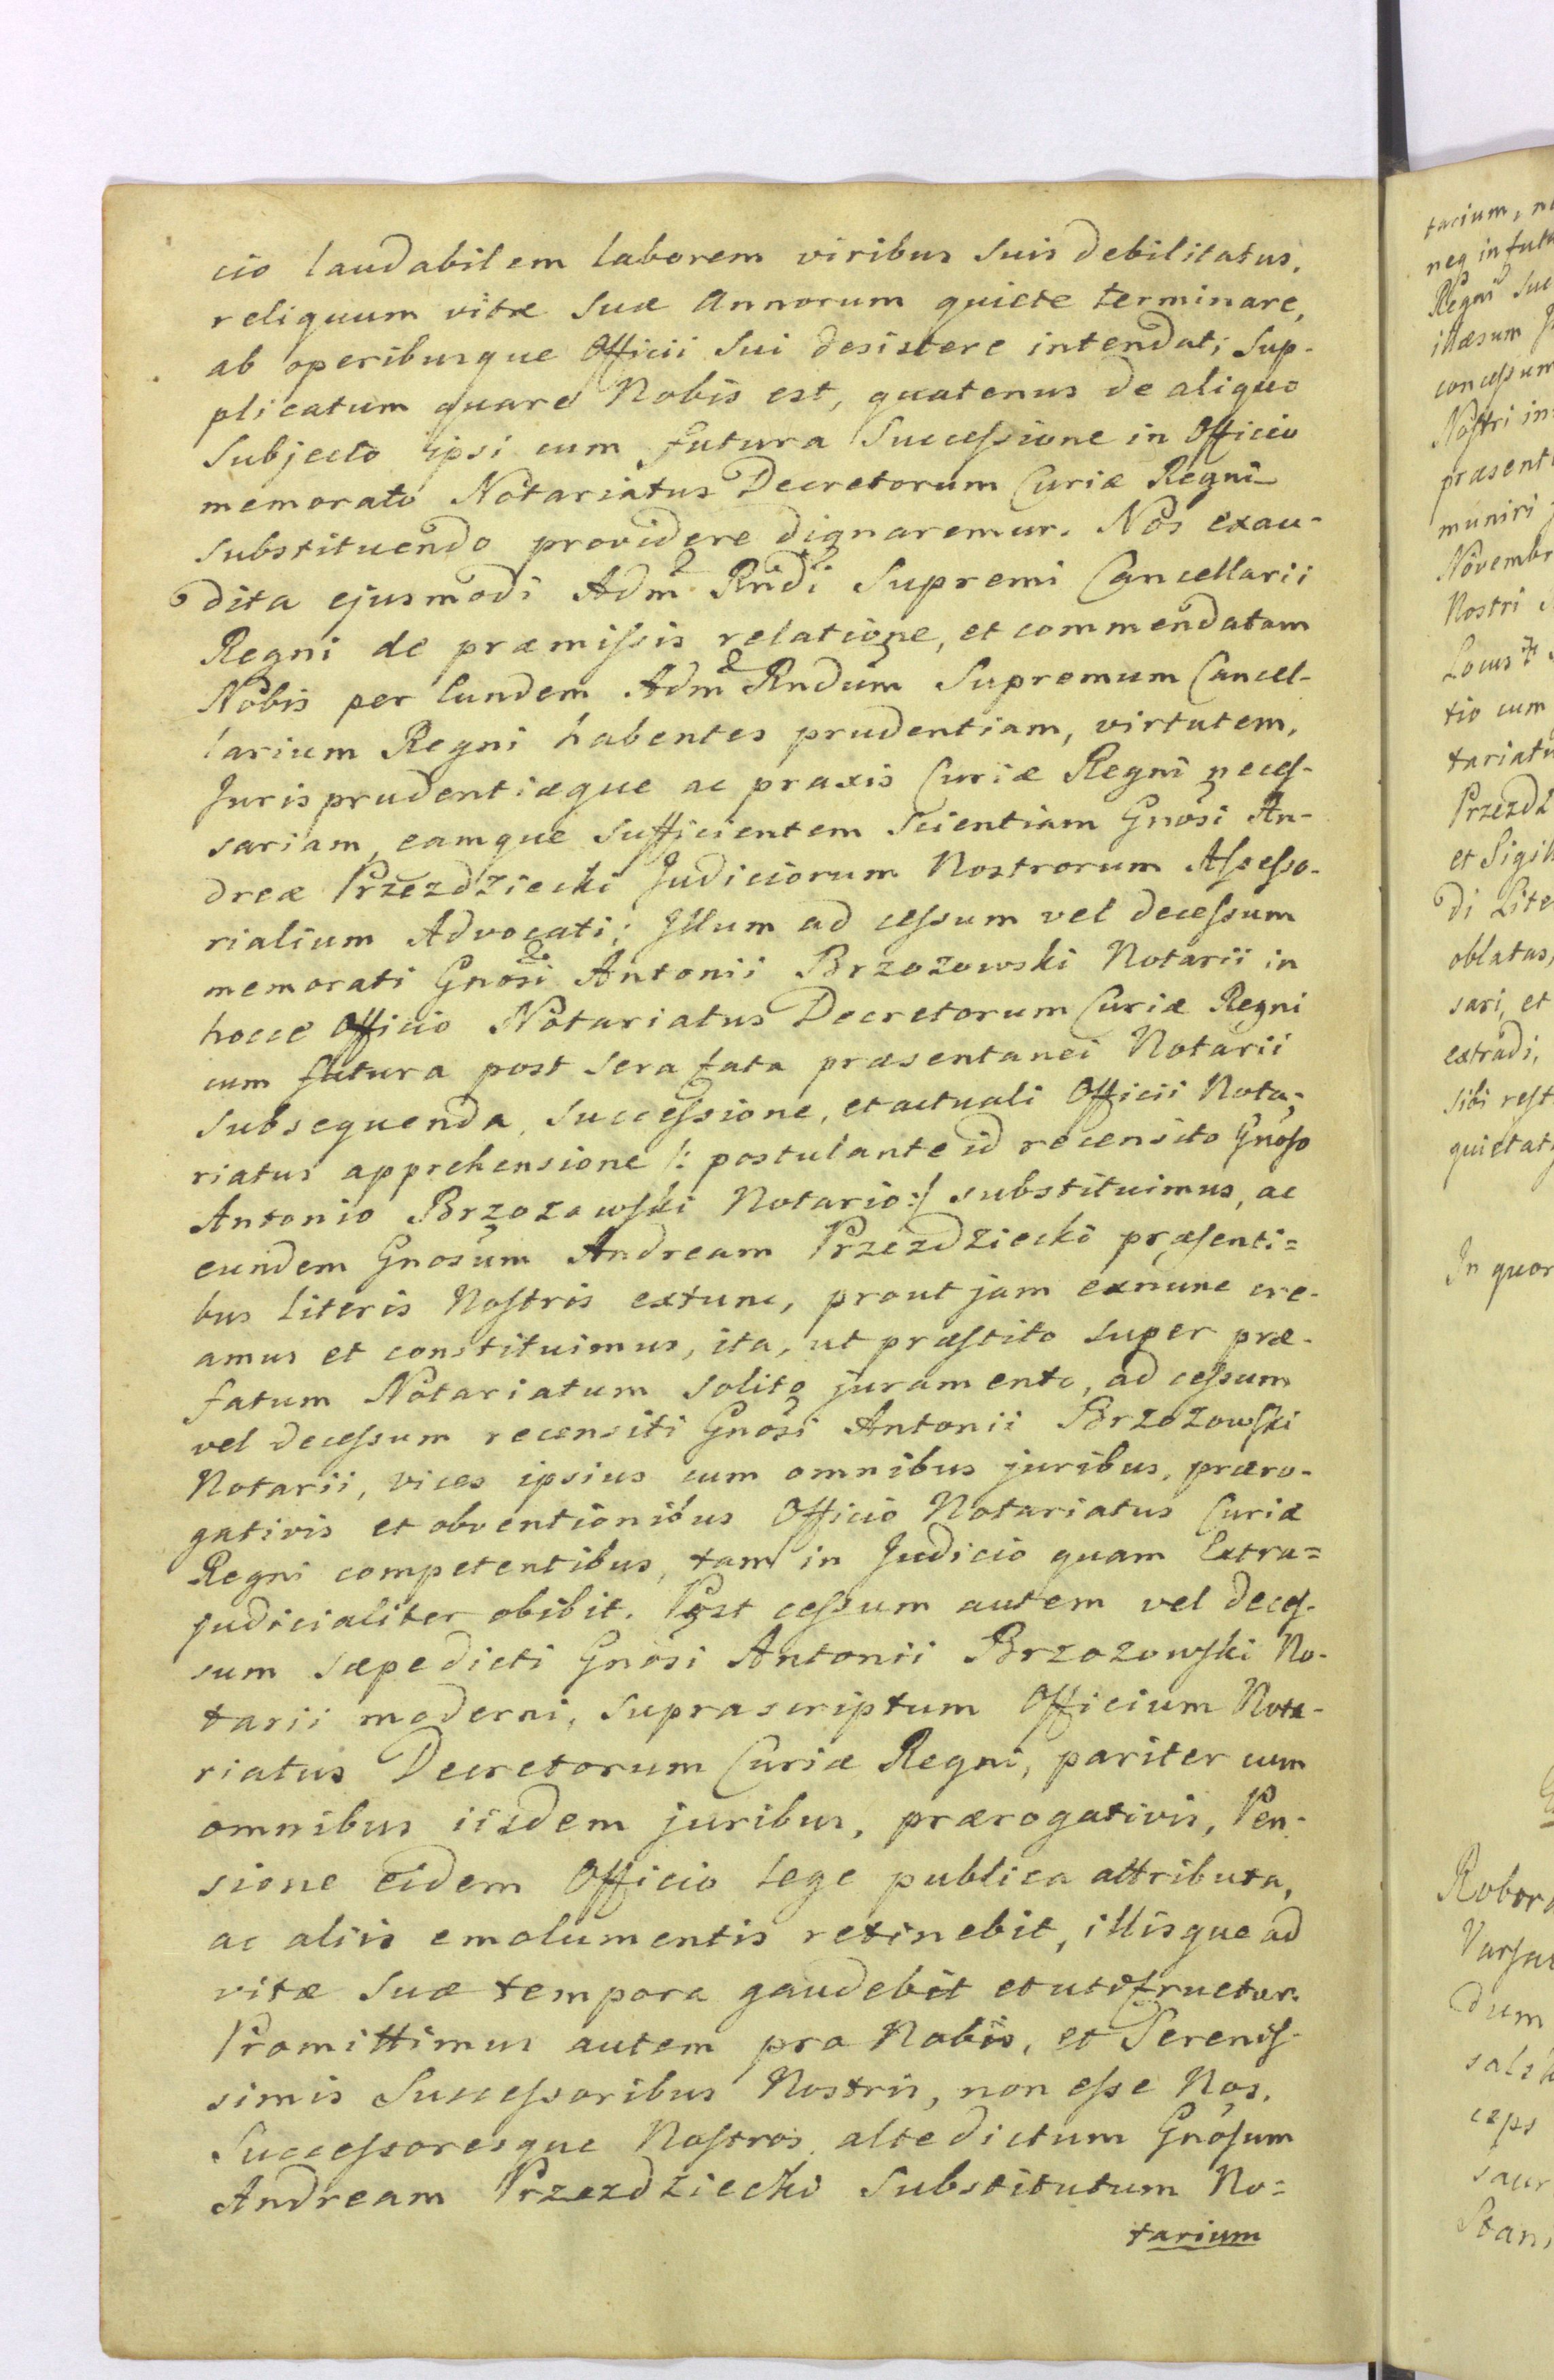 cio laudabilem laborem viribus suis debilitatus,
reliquum vitæ suæ Annorum quiete terminare,
ab operibusque Officii sui desistere intendat; sup-
plicatum quare Nobis est, quatenus de aliquo
Subjecto ipsi cum futura Succeſsione in Officio
memorato Notariatus Decretorum Curiæ Regni
substituendo providere dignaremur. Nos exau-
dita ejusmodi Adm Rndi Supremi Cancellarii
Regni de præmiſsis relatione, et commendatam
Nobis per Eundem Adm Rndum Supremum Cancel-
larium Regni habentes prudentiam, virtutem,
Jurisprudentiæque ac praxis Curiæ Regni neceſ-
sariam, eamque sufficientem scientiam Gnosi An-
dreæ Przezdziecki Judiciorum Nostrorum Aſseſso-
rialium Advocati; Illum ad ceſsum vel deceſsum
memorati Gnosi Antonii Brzozowski Notarii in
hocce Officio Notariatus Decretorum Curiæ Regni
cum futura post sera fata præsentanei Notarii
subsequenda, succeſsione, et actuali Officii Nota-
riatus apprehensione /: postulante id recensito Gnoſo
Antonio Brzozowſki Notario :/ substituimus, ac
eundem Gnosum Andream Przezdziecki præſenti=
bus Literis Noſtris extunc, prout jam exnunc cre-
amus et constituimus, ita, ut præſtito super præ-
fatum Notariatum solito juramento, ad ceſsum
vel deceſsum recensiti Gnosi Antonii Brzozowſki
Notarii, vices ipsius cum omnibus juribus, præro-
gativis et obventionibus Officio Notariatus Curiæ
Regni competentibus, tam in Judicio quam Extra=
judicialiter obibit. Post ceſsum autem vel deceſ-
sum sæpedicti Gnosi Antonii Brzozowſki No-
tarii moderni, supra scriptum Officium Nota-
riatus Decretorum Curiæ Regni, pariter cum
omnibus iisdem juribus, prærogativis, Pen-
sione eidem Officio Lege publica attributa,
ac aliis emolumentis retinebit, illisque ad
vitæ suæ tempora gaudebit et utifruetur.
Promittimus autem pro Nobis, et Sereniſ-
simis Succeſsoribus Nostris, non eſse Nos,
Succeſsoresque Noſtros, altedictum Gnoſum
Andream Przezdziecki Substitutum No=
tarium
tarium,
Regni
illæsum
conceſsum
Noſtri
muniri
Novembr
Nostri
Locus
tio cum
et Sigil
di Lite
oblatas,
sari, et
extradi,
sibi reſt
quietat
In quor
Robora
dum
Stan